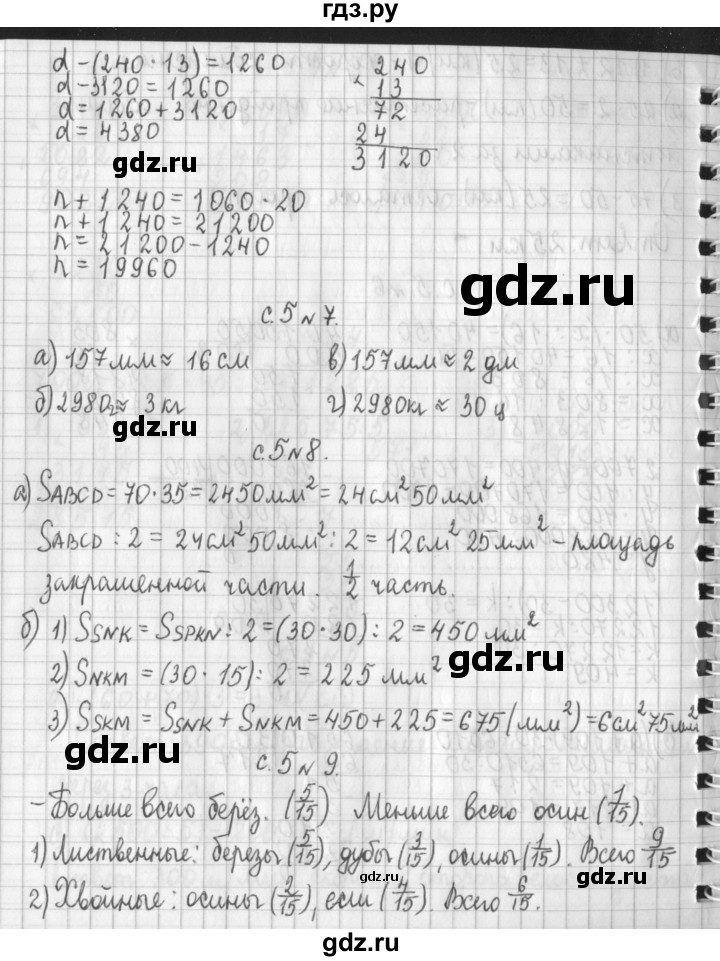 гдз.ру
d-(240·13)=1260
d-3120=1260
d=1260+3120
d=4380
240
× 13
72
24
3120
gdz.ru
n+1240=1060·20
n+1240=21200
n=21200-1240
n=19960
gdz.ru
с.5 №7.
а) 157мм≈ 16см
в) 157мм≈2 дм
б) 2980г≈ 3кг
г) 2980кг≈ 30 ц
gdz.ru
с.5 №8.
а) SABCD=70·35=2450мм²=24см²50мм²
SABCD : 2= 24см²50мм²: 2=12см² 25мм² - площадь
закрашенной части. 1/2 часть.
б) 1) SSNK=SSPKN: 2=(30·30): 2=450мм²
2) SNKM=(30·15): 2=225мм²
gdz.ru
3) SSKM=SSNK+SNKM=450+225=675(мм²)=6см²75мм²
gdz.ru
с.5 №9.
-Больше всего берёз. (5/15) Меньше всего осин (1/15).
1) Лиственные: березы (5/15), дубы (3/15), осины (1/15). Всего 9/15
gdz.ru
2) Хвойные: осины (2/15), если (4/15). Всего 6/15.
gdz.ru